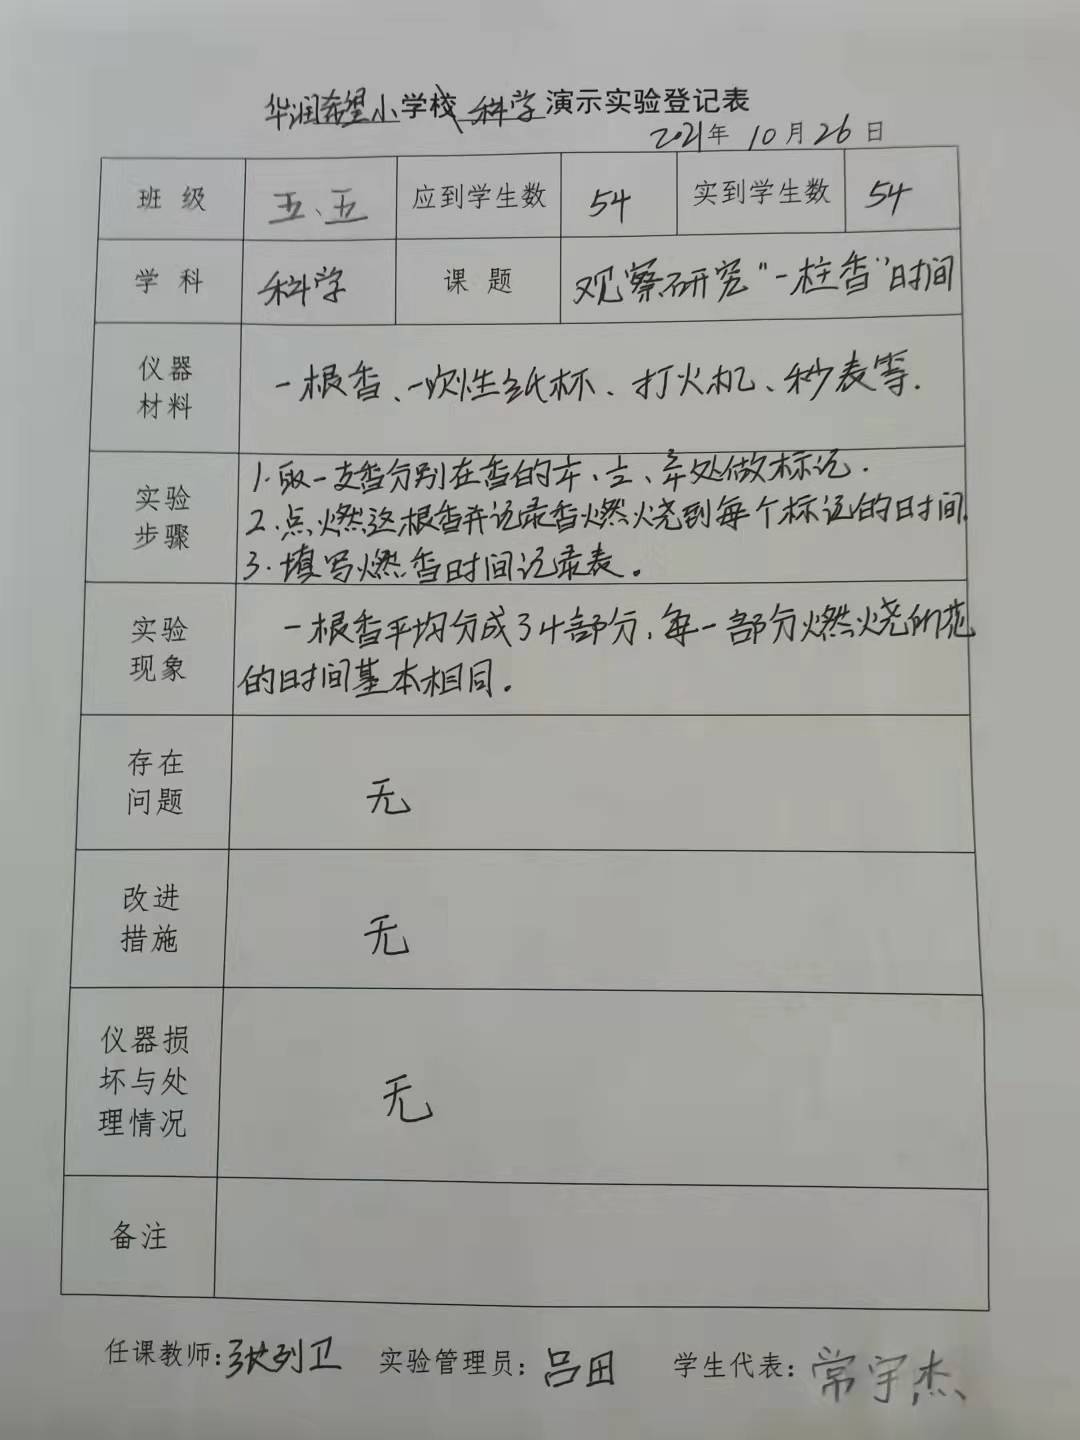 华润希望小学校科学演示实验登记表
2021年10月26日
班级 五、五 应到学生数 54 实到学生数 54
学科 科学 课题 观察研究“一柱香”时间
仪器材料 一根香、一次性纸杯、打火机、秒表等.
实验步骤 1.取一支香分别在香的 处做标记.
2.点燃这根香并记录香燃烧到每个标记的时间.
3.填写燃香时间记录表。
实验现象 一根香平均分成34部分,每一部分燃烧所花
的时间基本相同。
存在问题 无
改进措施 无
仪器损坏与处理情况 无
备注
任课教师: 列卫 实验管理员:吕田 学生代表:常宇杰